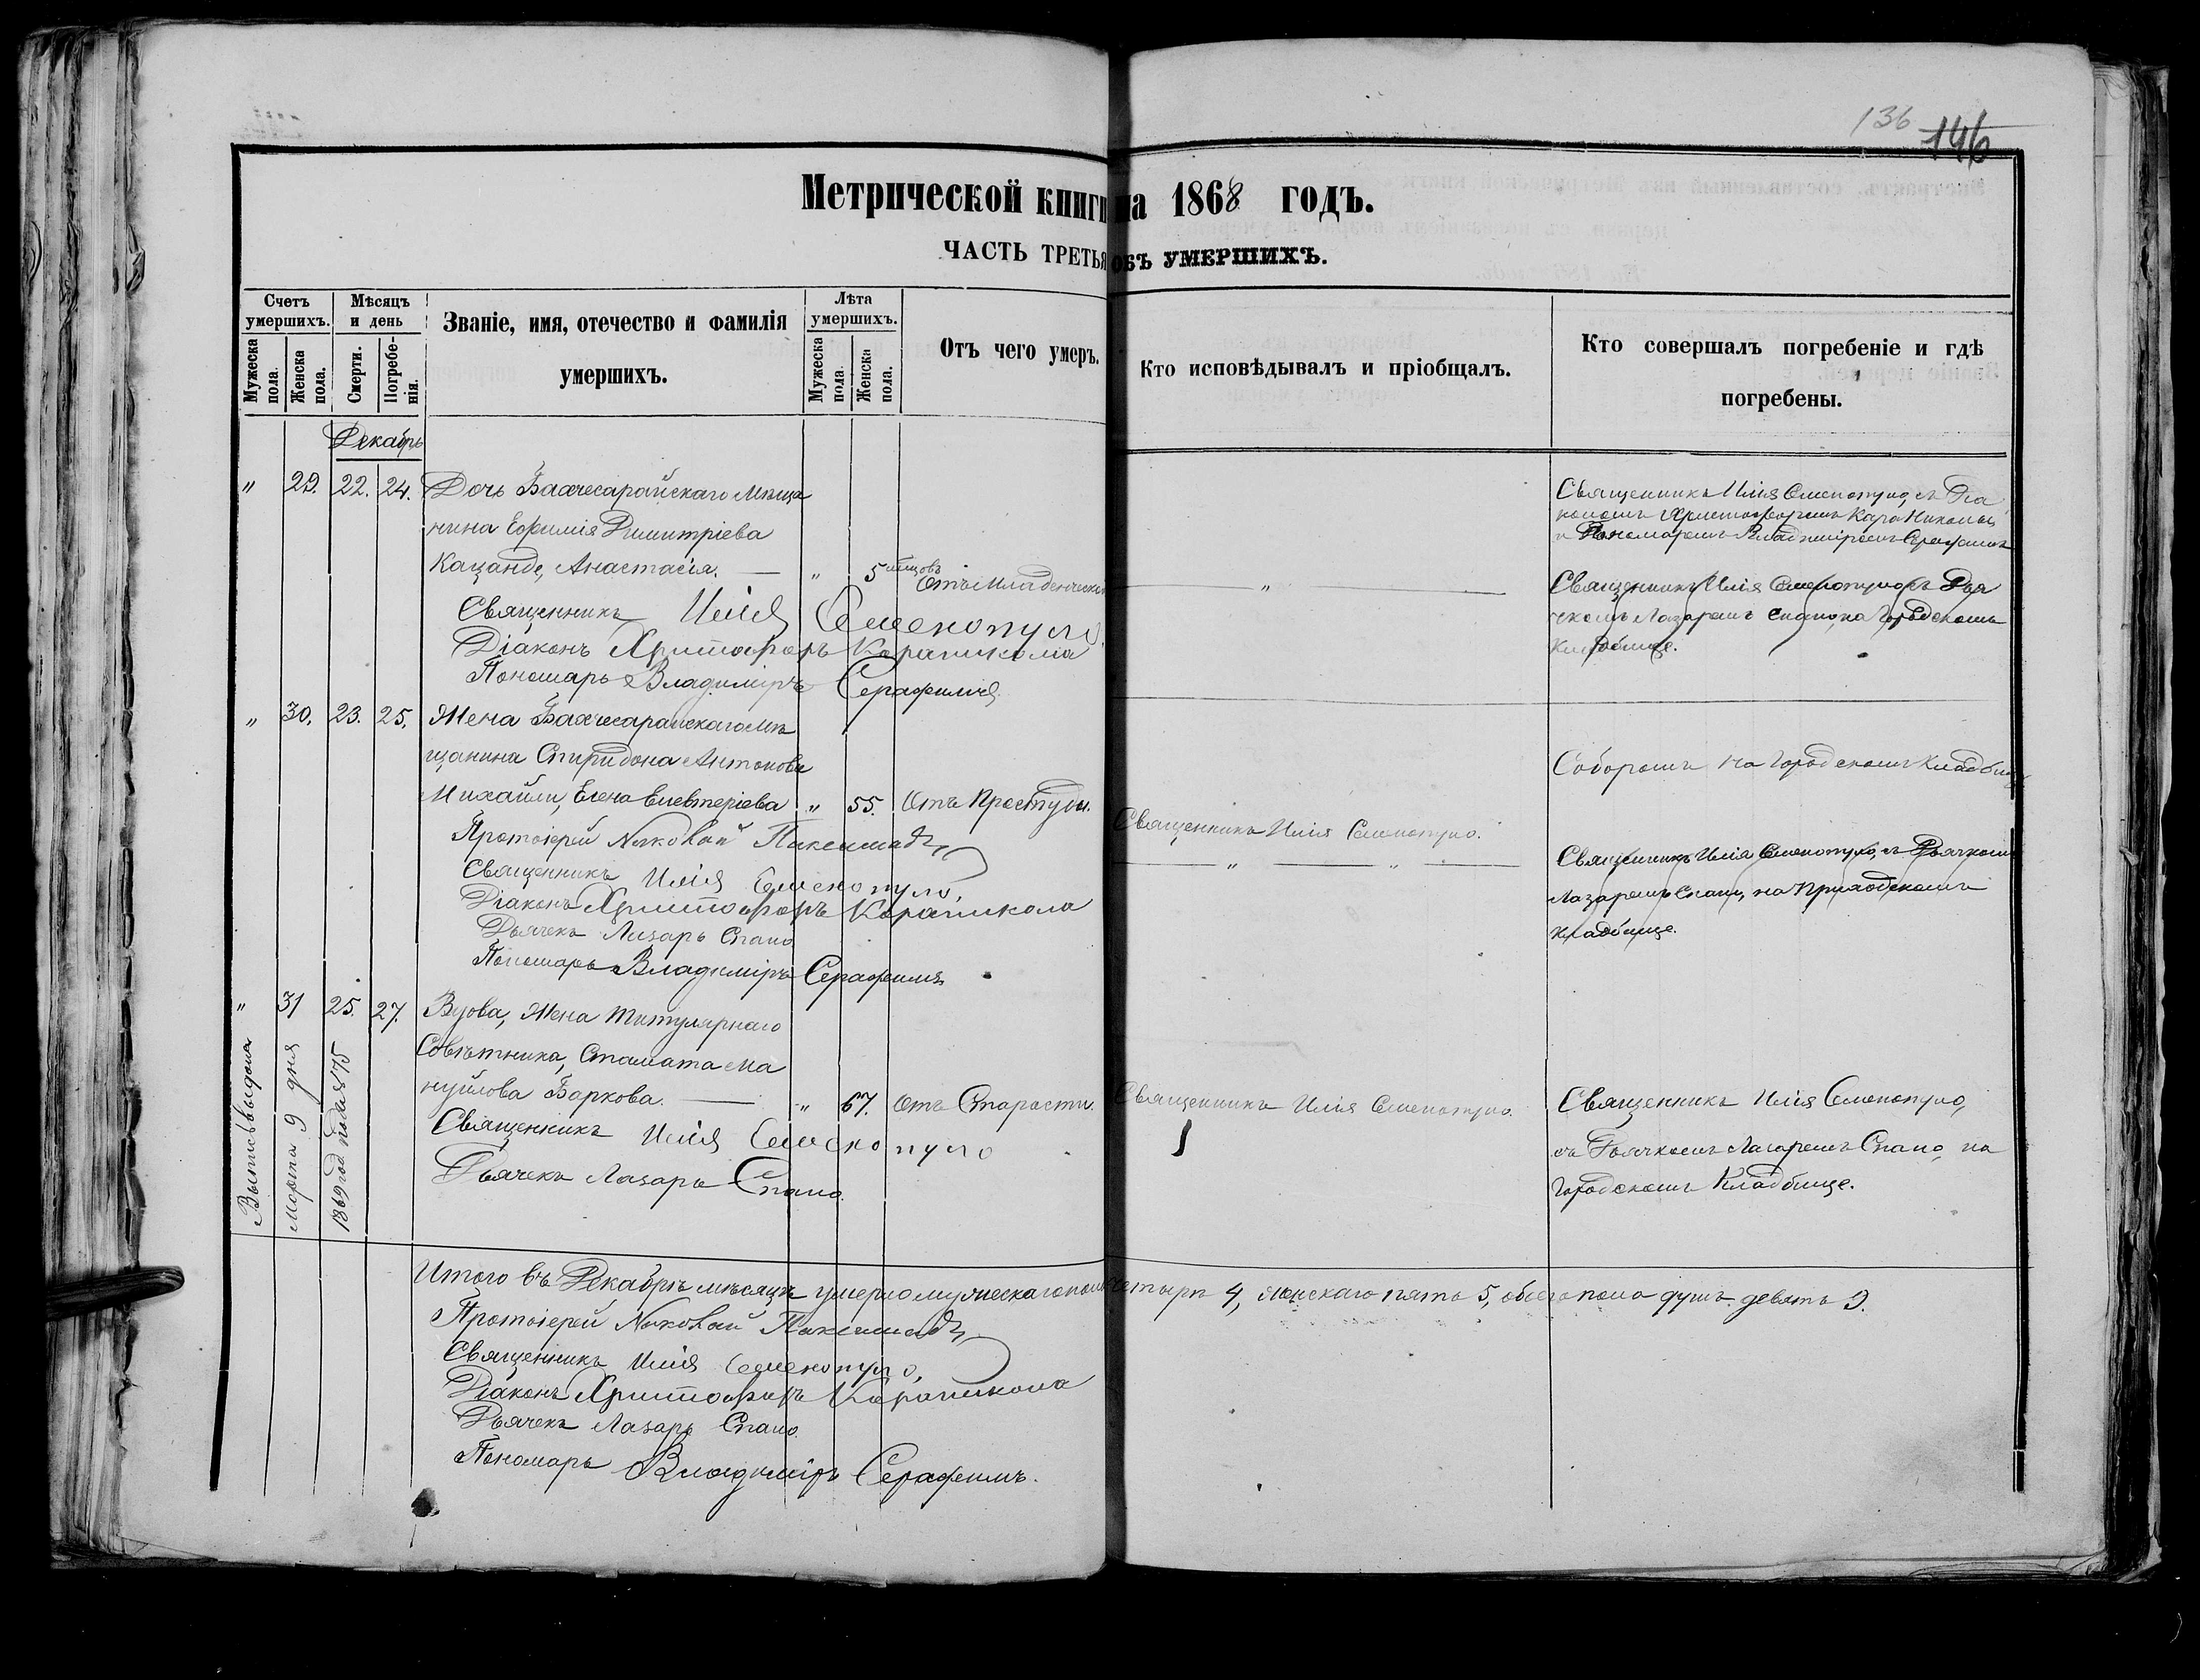 136 146
Метрической книги на 1868 годъ.
ЧАСТЬ ТРЕТЬЯ ОБЪ УМЕРШИХЪ.
Счетъ умершихъ.
Мужеска пола.
Женска пола.
Мѣсяцъ и день
Смерти.
Погребенія.
Званіе, имя, отечество и фамилія
умершихъ.
Лѣта умершихъ.
Мужеска пола.
Женска пола.
Отъ чего умеръ.
Кто исповѣдывалъ и пріобщалъ.
Кто совершалъ погребеніе и гдѣ
погребены.
Декабрь
" 29. 22. 24. Дочь Бахчесарайскаго Мѣща
нина Ефимія Димитріева
Кацанде, Анастасія. — " 5 мѣсцовъ Отъ младенческой
Священникъ Илія Семенопуло
Діаконъ Христофоръ Карапикола
Пономарь Владиміръ Серафимъ
— " —
Священникъ Илія Семенопуло, съ Діа
кономъ Христофоромъ Кара Николы
и Пономаремъ Владиміромъ Серафимъ
Священникъ Илія Семенопуло съ Дья
чкомъ Лазаремъ Спано, на Городскомъ
Кладбище.
" 30. 23. 25. Жена Бахчесарайскаго Мѣ
щанина Спиридона Антонова
Михайли, Елена Елевтеріева " 55. Отъ Простуды.
Протоіерей
Священникъ Илія Семенопуло.
Діаконъ Христофоръ Карапикола
Дьячекъ Лазарь Спано
Пономарь Владиміръ Серафимъ
Священникъ Илія Семенопуло.
— " — " —
Соборомъ на Городскомъ Кладбище
Священникъ Илія Семенопуло, съ Дьячкомъ
Лазаремъ Спано, на Приходскомъ
Кладбище.
" 31 25. 27. Вдова, Жена Титулярнаго
Совѣтника, Стамата Ма
нуйлова Баркова. — " 67. Отъ Старости.
Священникъ Илія Семенопуло
Дьячекъ Лазарь Спано.
Священникъ Илія Семенопуло.
Священникъ Илія Семенопуло,
съ Дьячкомъ Лазаремъ Спано, на
Городскомъ Кладбище.
Выпись выдана
Марта 9 дня
1869 год
Итого въ Декабрѣ мѣсяцѣ умерло мужескаго пола четыре 4, женскаго пять 5, обоего пола душъ девять 9.
Протоіерей
Священникъ Илія Семенопуло,
Діаконъ Христофоръ Карапикола
Дьячекъ Лазарь Спано.
Пономарь Владиміръ Серафимъ.